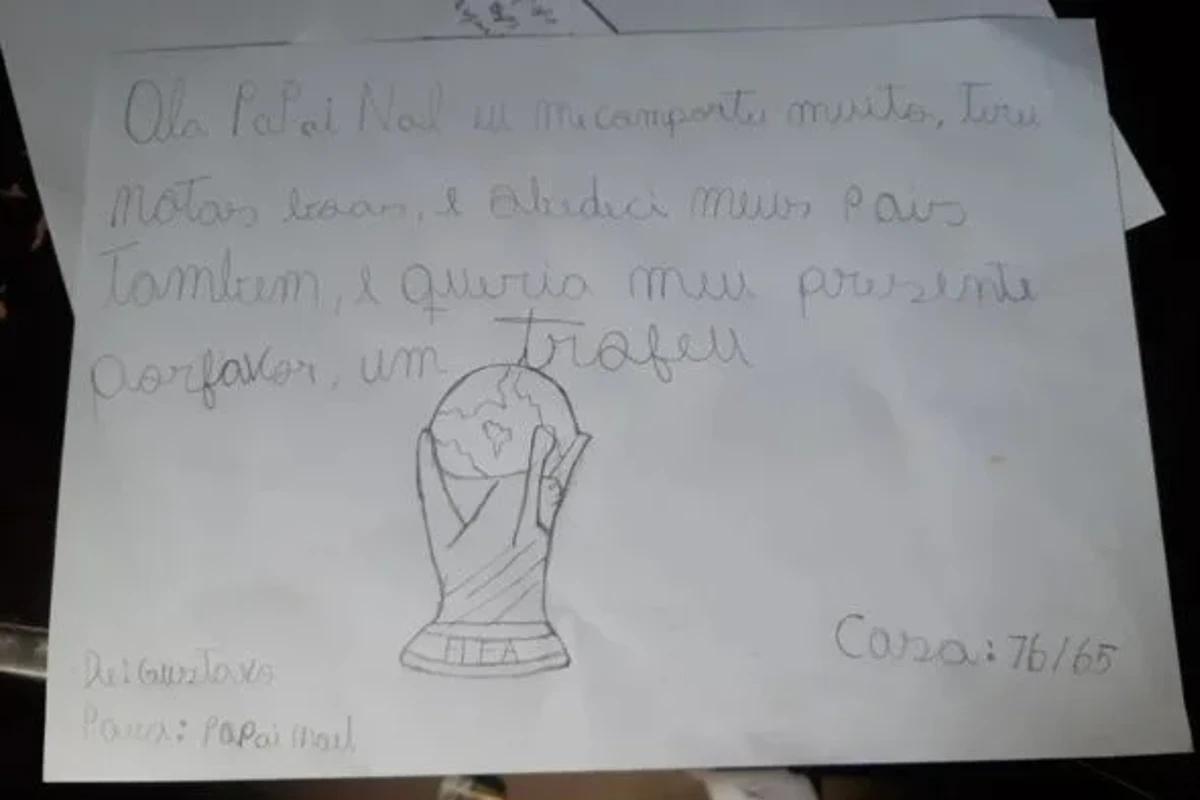 Ola PaPai Noel eu me comportei muito, Tirei
notas boas, e obedeci meus pais
Tambem, e queria meu presente
porfavor, um Trofeu
FIFA
Casa: 76/65
De: Gustavo
Para: PaPai Noel